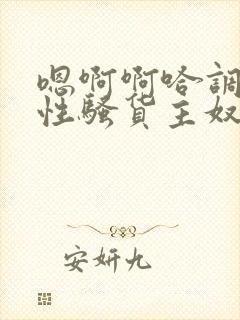 嗯啊啊哈调
性骚货主奴
安妍九